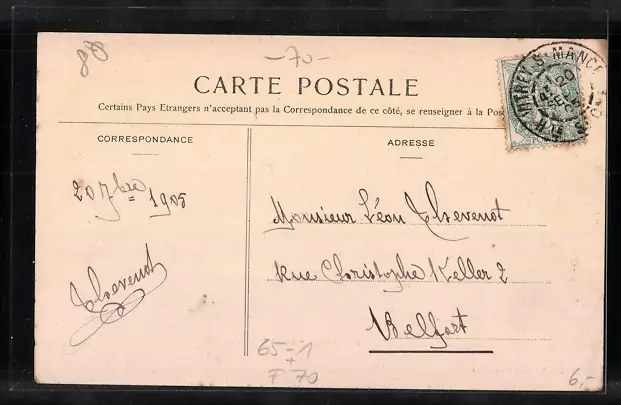 88
-70-
CARTE POSTALE
Certains Pays Etrangers n'acceptant pas la Correspondance de ce côté, se renseigner à la Pos
CORRESPONDANCE
ADRESSE
20 7bre 1905
Thevenot
Monsieur Léon Thevenot
Rue Christophe Keller 2
Belfort
65-1
+
F 70
6,-
VITREY S. MANCE